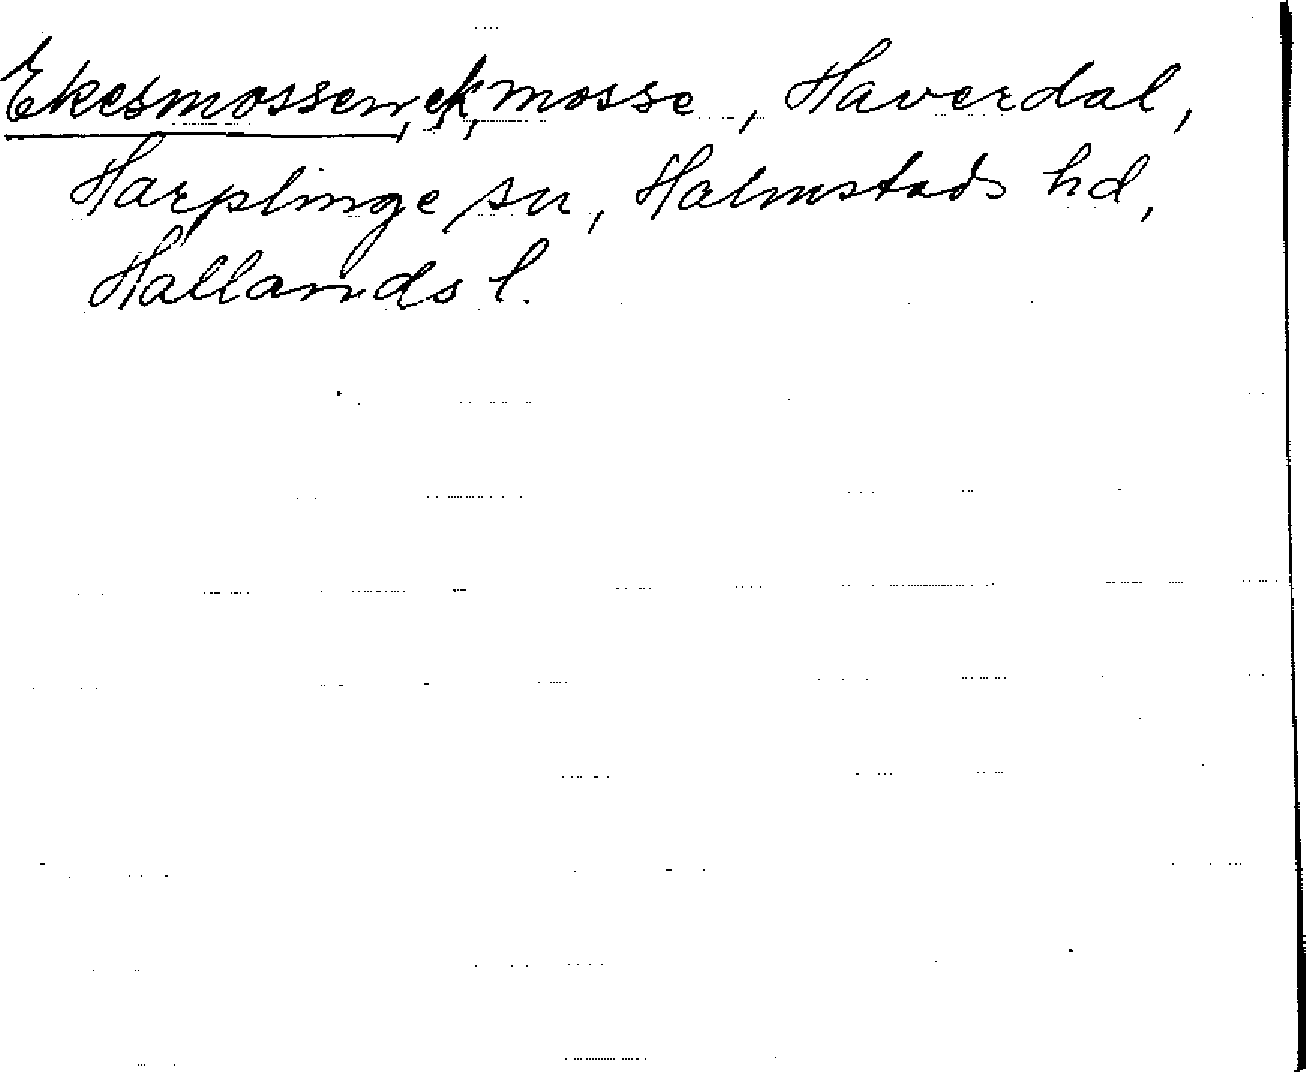 Ekesmossen, ek, mosse, Haverdal,
Harplinge sn, Halmstads hd,
Hallands l.